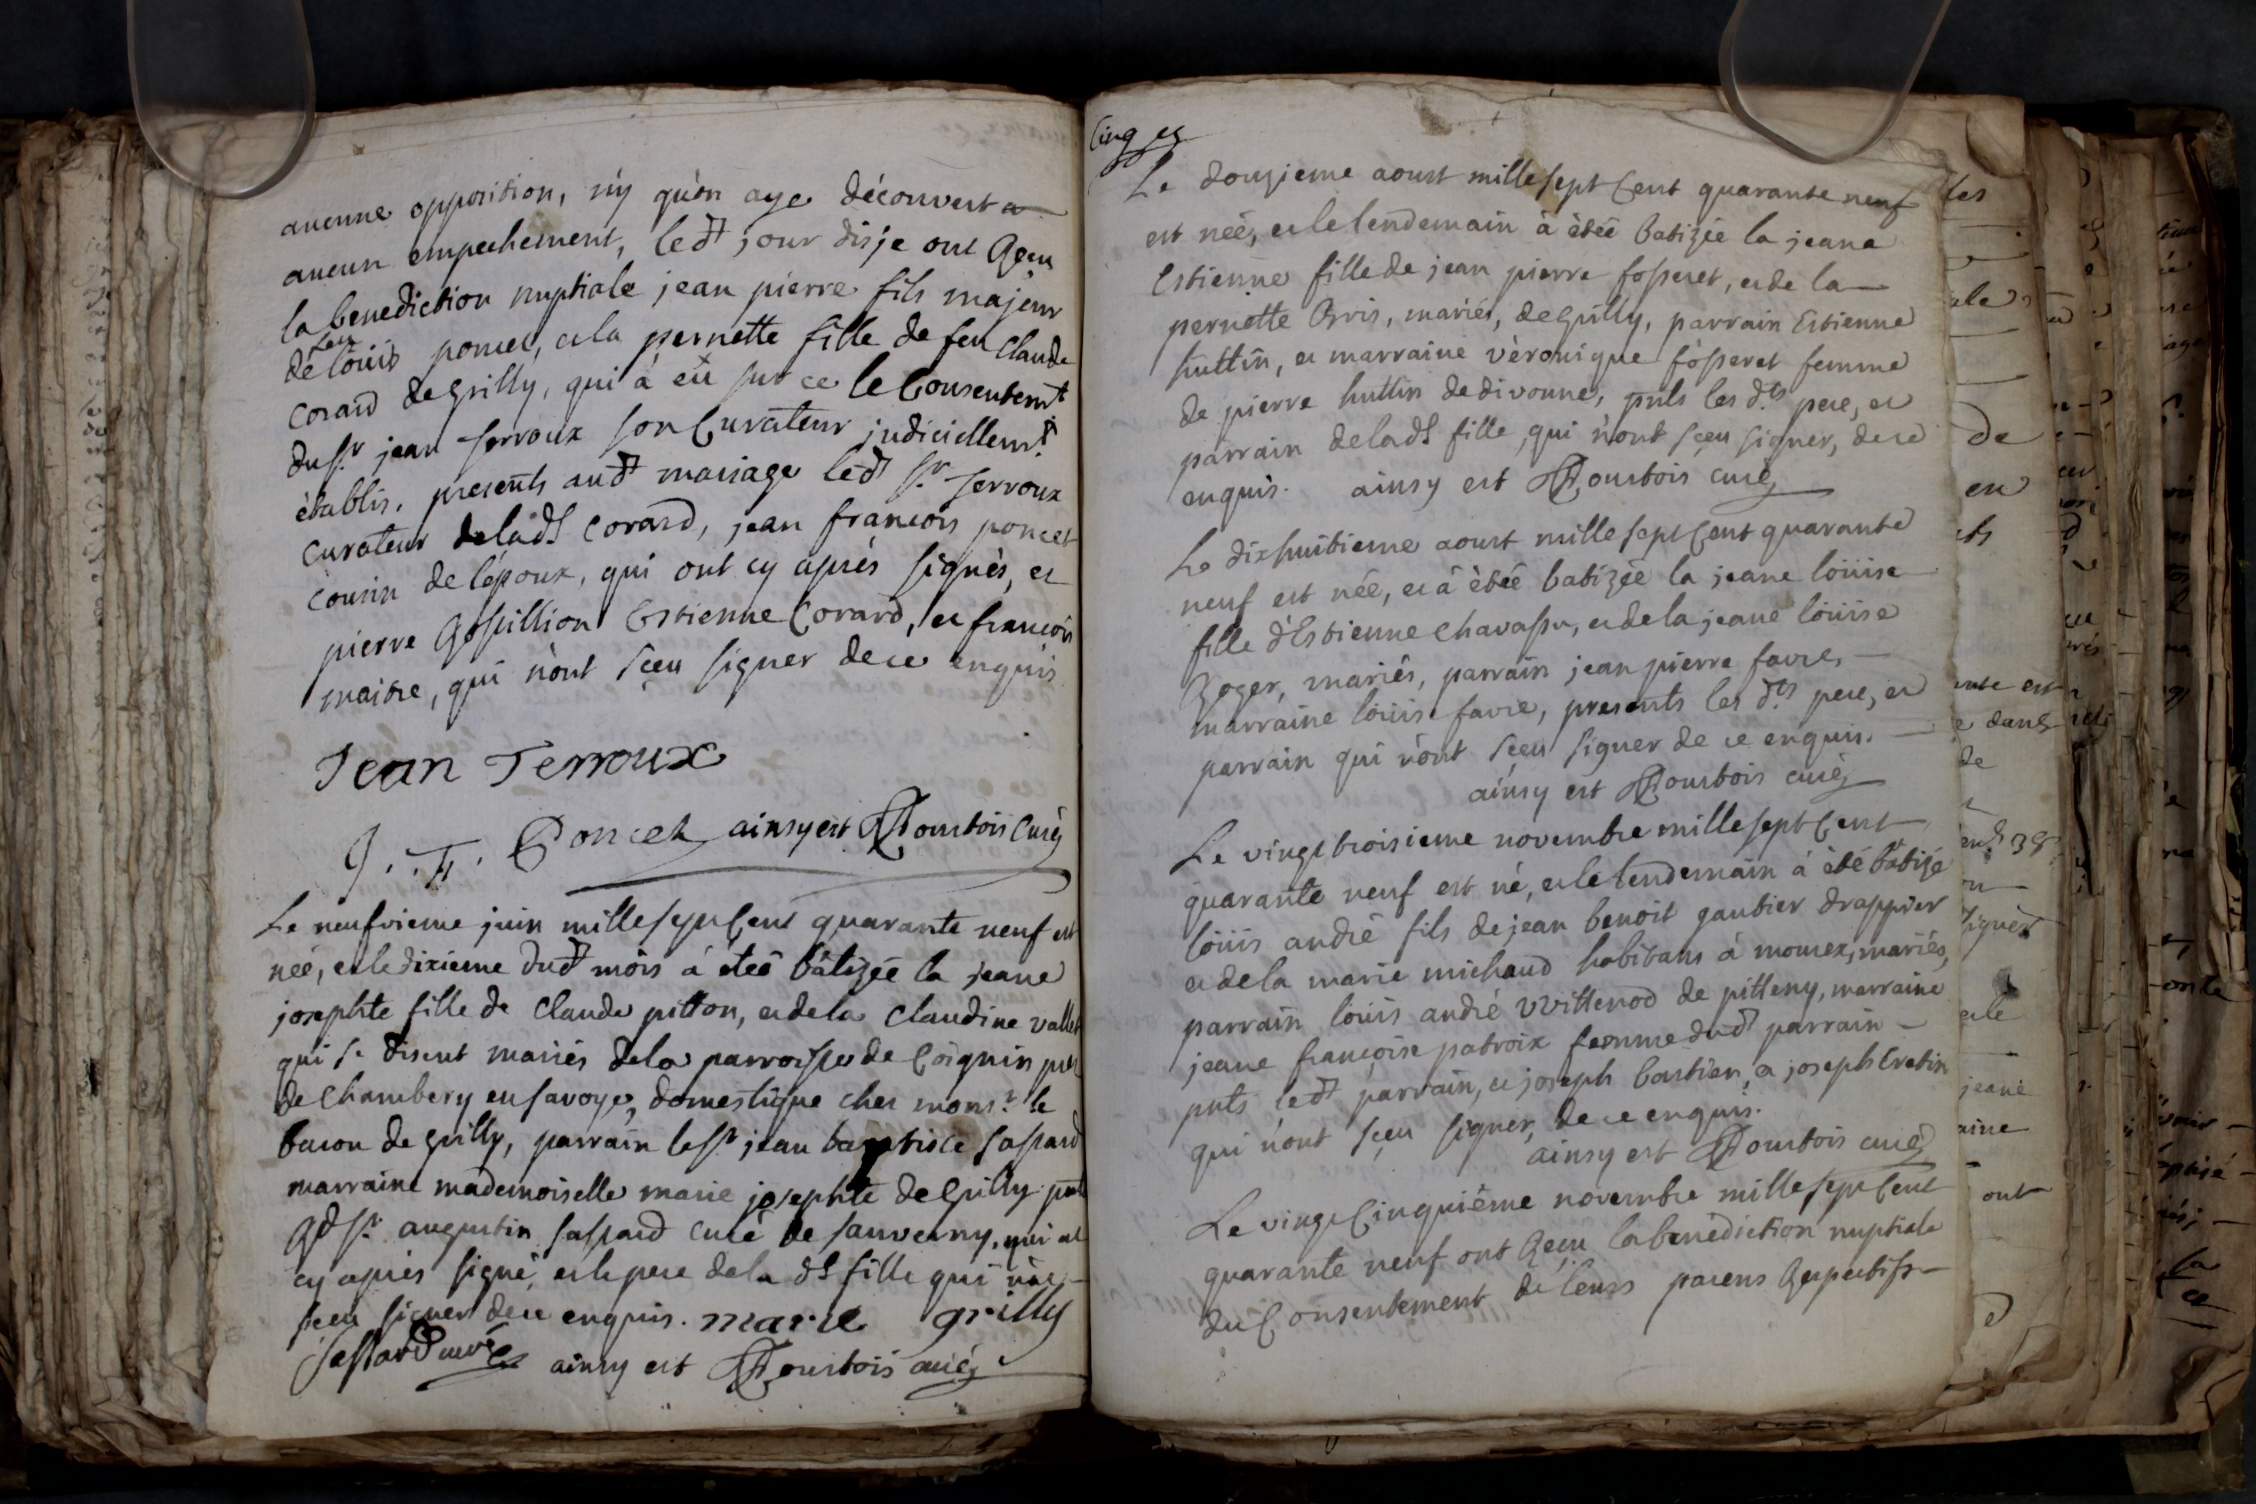 aucune opposition, n'y qu'on aye découvert a
aucun empechement, led.t jour disje ont Reçeu
la benediction nuptiale jean pierre fils majeur
de feu loüis poncet, et la pernette fille de feu Claude
Corard de grilly, qui à eu sur ce le Consentem.t
du s.r jean Terroux son Curateur judiciellem.t
établis. presents aud.t mariage led.t s.r Terroux
curateur de lad.te Corard, jean francois poncet
cousin de l'époux, qui ont cy aprés signés, et
pierre Estienne Corard, et francois
maitre, qui n'ont sçeu signer de ce enquis
Jean Terroux
J. F. Poncet ainsy est Courtois Curé
Le neufvieme juin mille sept Cent quarante neuf est
née, et le dixieme dud.t môis à étée bâtizée la jeane
josephte fille de Claude pitton, et de la Claudine vallet
qui se disent mariés de la parroisse de Coignin pres
de Chambery en savoye, domestique chez mons.r le
baron de grilly, parrain le s.r jean baptiste sassard
marraine mademoiselle marie josephte de Grilly. pnts
Rd s.r augustin sassard curé de sauverny, qui at
cy aprés signé, et le pere de la d.te fille qui n'at
sceu signer de ce enquis. marie grilly
Sassard curé ainsy est Courtois curé
Cinq
Le douzieme aoust mille sept Cent quarante neuf
est néé, et le lendemain à étéé batizée la jeane
Estienne fille de jean pierre fosseret, et de la
pernette Bris, mariés, de Grilly, parrain Estienne
huttin, et marraine véronique fosseret femme
de pierre huttin de divonne, pnts les d.ts pere, et
parrain de lad.te fille, qui n'ont sçeu signer, de ce
enquis. ainsy est Courtois curé
Le dixhuitieme aoust mille sept Cent quarante
neuf est née, et à étéé batizée la jeane loüise
fille d'Estienne Chavassu, et de la jeane loüise
Roger, mariés, parrain jean pierre favre,
marraine loüise favre, presents les d.ts pere, et
parrain qui n'ont sçeu signer de ce enquis.
ainsy est Courtois curé
Le vingt troisieme novembre mille sept Cent
quarante neuf est né, et le lendemain à été bâtizé
loüis andré fils de jean benoit gautier drappier
et de la marie michaud habitans à mourex, mariés,
parrain loüis andré vvittenod de pitteny, marraine
jeane françoise patroix femme dud.t parrain
pnts led.t parrain, et joseph bastien, et joseph Cretin
qui n'ont sçeu signer, de ce enquis.
ainsy est Courtois curé
Le vingt Cinquiéme novembre mille sept Cent
quarante neuf ont Reçeu la benédiction nuptiale
du Consentement de leurs parens Respectifs